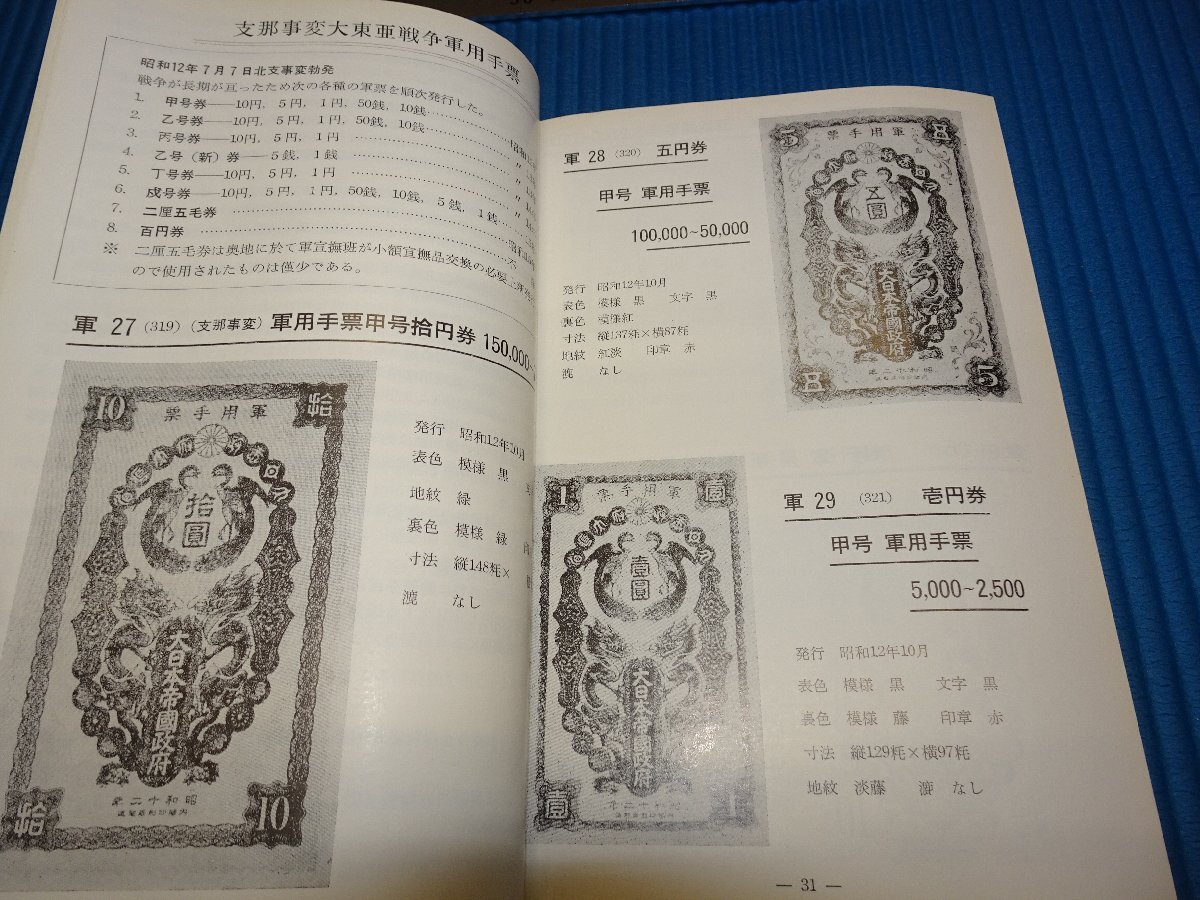 支那事変大東亜戦争軍用手票
昭和12年7月7日北支事変勃発
戦争が長期が亘ったため次の各種の軍票を順次発行した。
1. 甲号券――10円, 5円, 1円, 50銭, 10銭
2. 乙号券――10円, 5円, 1円, 50銭, 10銭
3. 丙号券――10円, 5円, 1円
4. 乙号（新）券――5銭, 1銭
5. 丁号券――10円, 5円, 1円
6. 戍号券――10円, 5円, 1円, 50銭, 10銭, 5銭, 1銭
7. 二厘五毛券
8. 百円券
※ 二厘五毛券は奥地に於て軍宣撫班が小額宣撫品交換の必要上
ので使用されたものは僅少である。
軍 27 (319) (支那事変) 軍用手票甲号拾円券 150,000~
10 拾
票手用軍
拾圓
大日本帝國政府
年二十和昭
拾 10
発行 昭和12年10月
表色 模様 黒
地紋 緑
裏色 模様 緑
寸法 縦148粍×
漉 なし
軍 28 (320) 五円券
甲号 軍用手票
100,000~50,000
発行 昭和12年10月
表色 模様 黒 文字 黒
裏色 模様紅
寸法 縦137粍×横87粍
地紋 紅淡 印章 赤
漉 なし
票手用軍
五圓
大日本帝國政府
年二十和昭
5
軍 29 (321) 壱円券
甲号 軍用手票
5,000~2,500
発行 昭和12年10月
表色 模様 黒 文字 黒
裏色 模様 藤 印章 赤
寸法 縦129粍×横97粍
地紋 淡藤 漉 なし
1 壹
票手用軍
壹圓
大日本帝國政府
年二十和昭
壹 1
― 31 ―